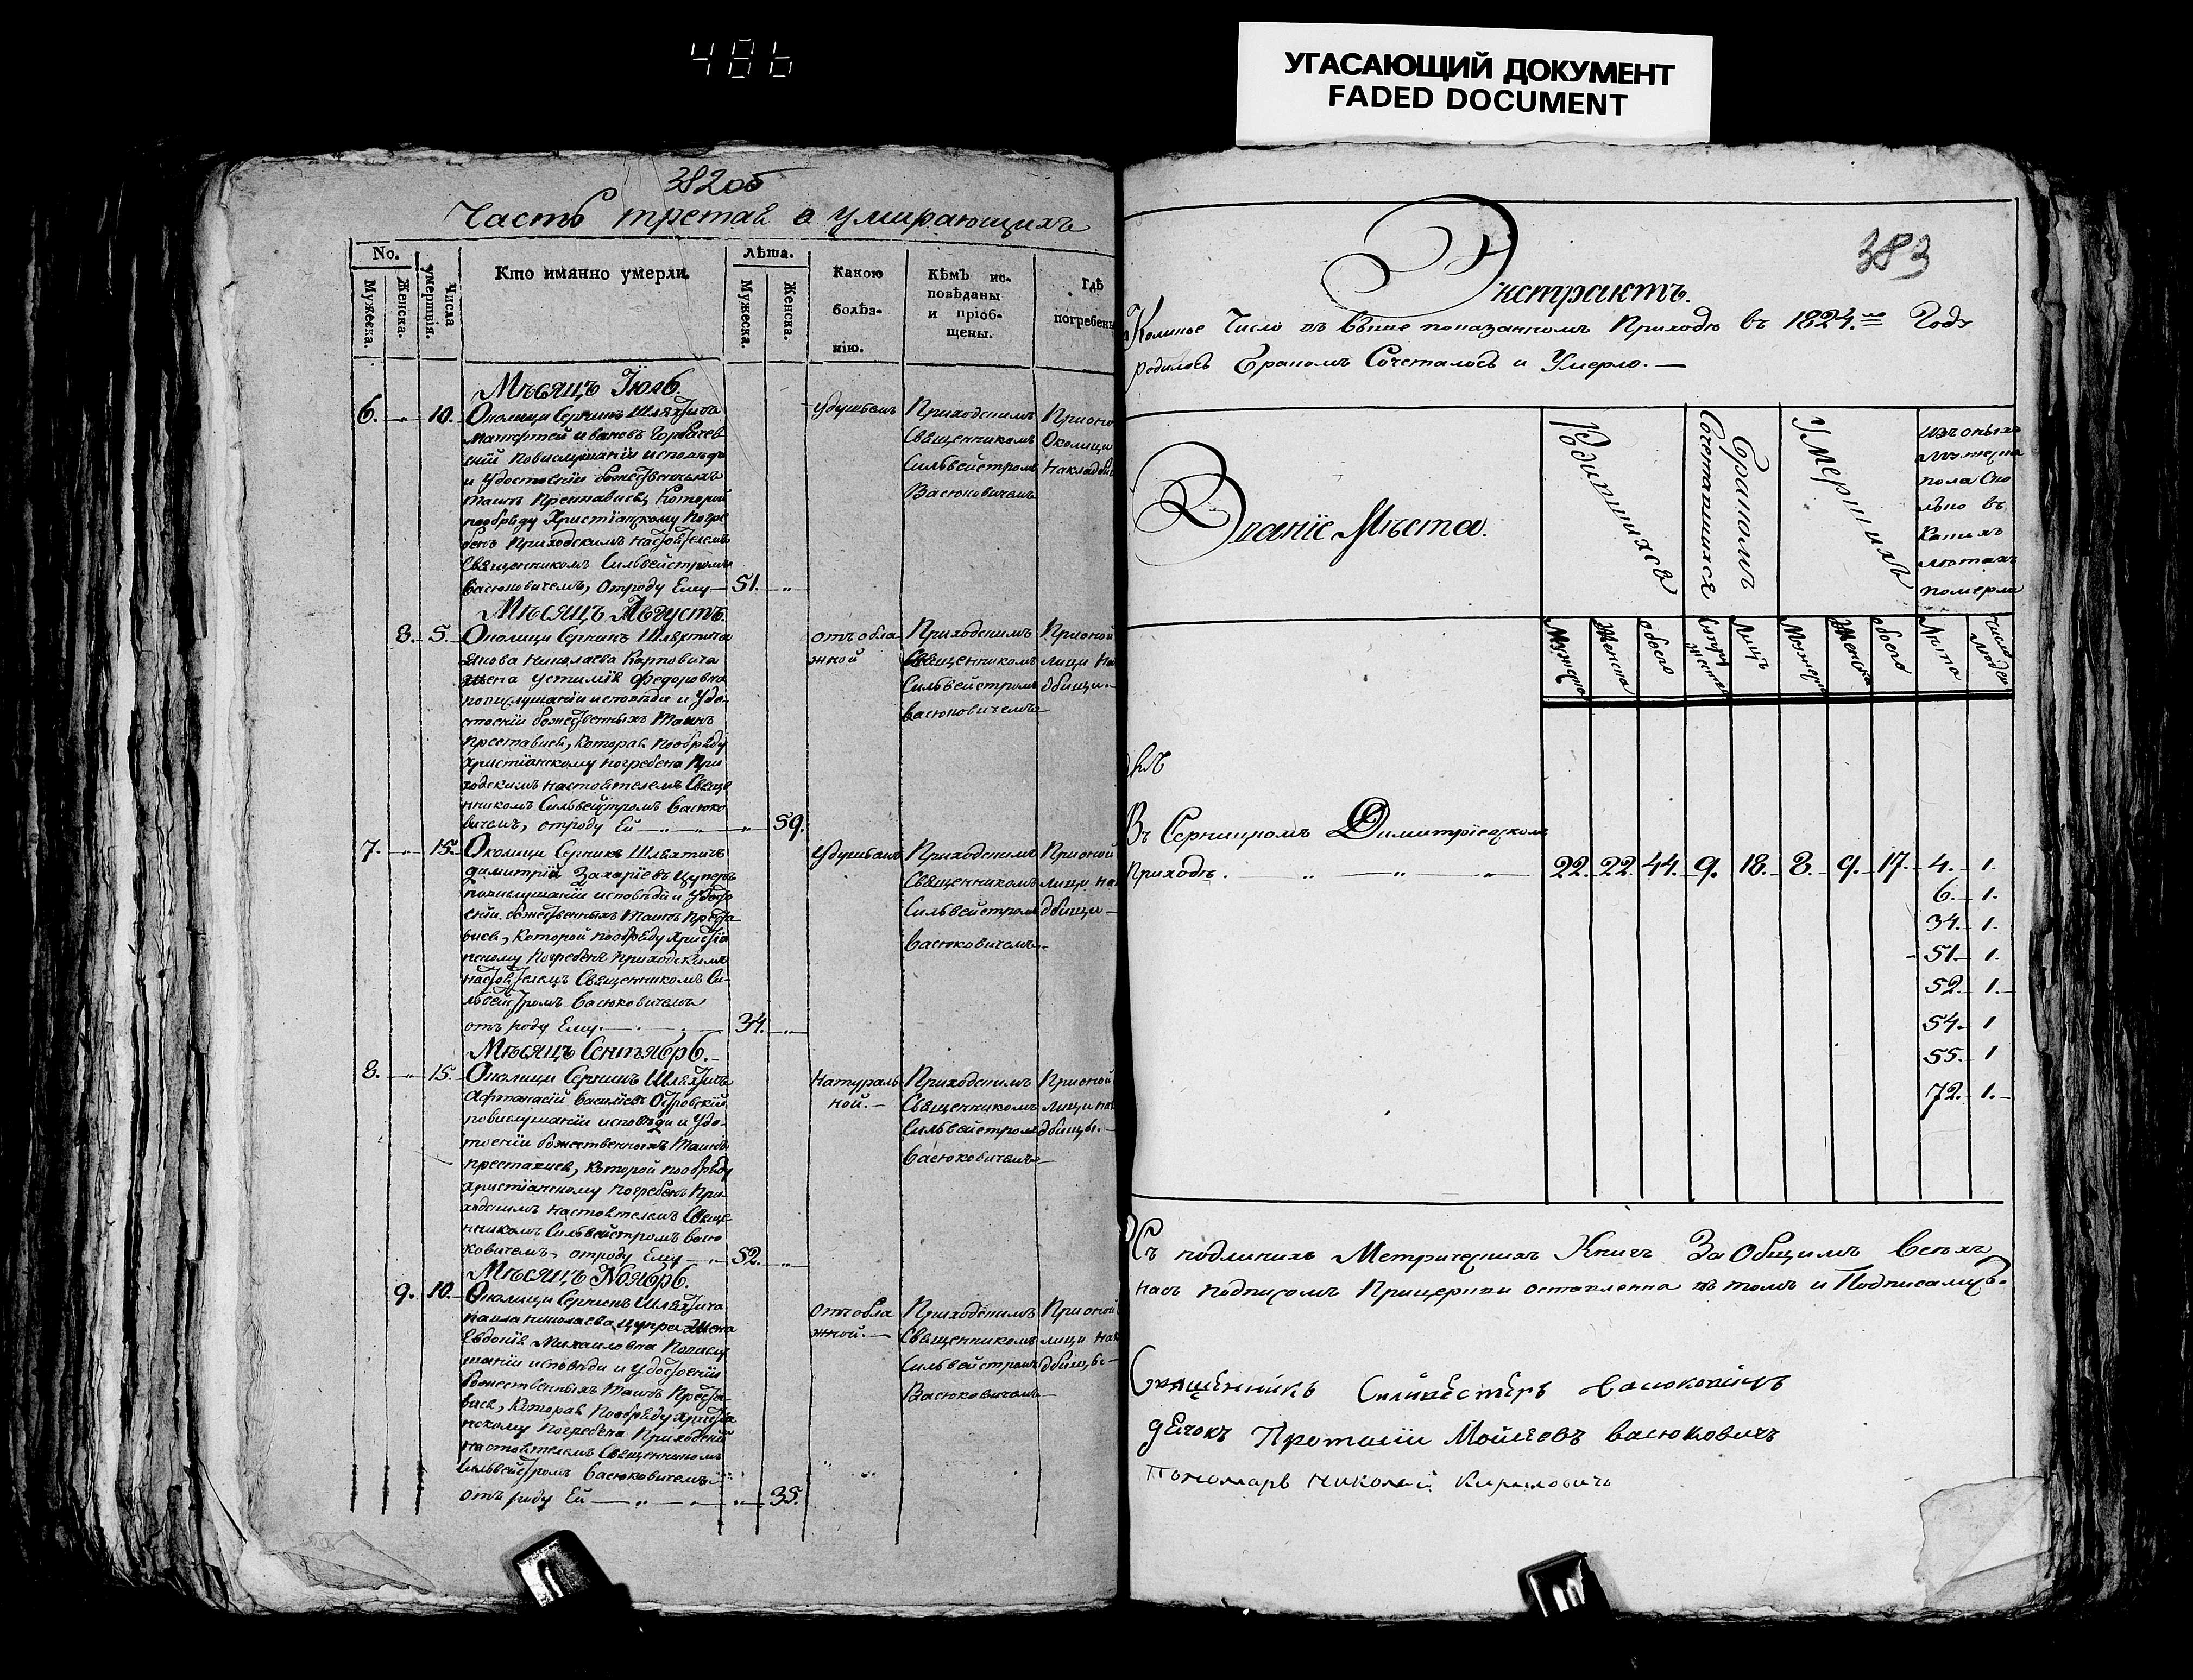 486
УГАСАЮЩИЙ ДОКУМЕНТ
FADED DOCUMENT
382об
Часть третая о умирающихъ
No.
Мужеска.
Женска.
Числа умертвія.
Кто имянно умерли.
Лѣта.
Мужеска.
Женска.
Какою болѣз-
нію.
Кѣмъ ис-
повѣданы
и пріоб-
щены.
Гдѣ
погребены
Мѣсяцъ Іюль
6. „ 10. Околици Серникъ Шляхтичъ
Ивановъ Горбачев
скій повислушаніи исповѣди
и удостоеніи божественныхъ
таинъ преставися, которой
пообряду Христіанскому погре
бенъ Приходскимъ настоятелемъ
Священникомъ Сильвейстромъ
Васюковичемъ, отроду Ему 51. „
удушьемъ
Приходскимъ
Священникомъ
Сильвейстромъ
Васюковичемъ
Прионо
Околици
накладби
Мѣсяцъ Августъ
8. 5. Околици Серникъ Шляхтича
Якова Николаева Карповича
жена Устимія Федоровна
повислушаніи исповѣди и удо-
стоеніи божественныхъ таинъ
преставися, которая пообряду
христіанскому погребена При
ходскимъ настоятелемъ Свяще
нникомъ Сильвейстромъ Васюко
вичемъ, отроду Ей „ 59.
отъ обла
жной
Приходскимъ
Священникомъ
Сильвейстромъ
Васюковичемъ
Прионой
лици на
дбищи
7. „ 15. Околици Серникъ Шляхтичъ
Димитрій Захаріевъ Цуперъ
повислушаніи исповѣди и удосто
еніи божественныхъ таинъ преста
вися, которой пообряду христіа
нскому погребенъ Приходскимъ
настоятелемъ Священникомъ Си-
львейстромъ Васюковичемъ
отъ роду Ему. 34. „
удушьемъ
Приходскимъ
Священникомъ
Сильвейстромъ
Васюковичемъ
Прионой
лици на
дбищи
Мѣсяцъ Сентябрь.
8. „ 15. Околици Серникъ Шляхтичъ
Афтанасій Василіевъ Островскій
повислушаніи исповѣди и удо-
стоеніи божественныхъ таинъ
преставися, которой пообряду
христіанскому погребенъ При-
ходскимъ настоятелемъ Свяще
нникомъ Сильвейстромъ Васю
ковичемъ, отроду Ему 52. „
Натураль
ной.
Приходскимъ
Священникомъ
Сильвейстромъ
Васюковичемъ
Прионой
лици на
дбищы.
Мѣсяцъ Ноябрь.
9. 10. Околици Серникъ Шляхтича
Павла Николаева Цупра жена
Евдокія Михаиловна повислу
шаніи исповѣди и удостоеніи
божественныхъ таинъ преста
вися, которая пообряду христіа
нскому погребена Приходскимъ
настоятелемъ Священникомъ
Сильвейстромъ Васюковичемъ
отъ роду Ей „ 35.
отъ обла
жной.
Приходскимъ
Священникомъ
Сильвейстромъ
Васюковичемъ
Прионой
лици на
дбищы
383
Экстрактъ.
Коликое Число въ выше показанномъ Приходѣ въ 1824.мъ Годѣ
родилось Бракомъ Сочеталось и Умерло.
Званіе Мѣста.
Родившихся
Бракомъ Сочетавшихся
Умершихъ
изъ оныхъ
мужеска
пола Ско
лько въ
Какихъ
лѣтахъ
померли
Мужеска
Женска
обоего
Лицъ
Мужеска
Женска
обоего
Лѣта
число людей
Въ Серницкомъ Димитріевском
Приходѣ. 22. 22. 44. 9. 18. 8. 9. 17. 4. 1.
6. 1.
34. 1.
51. 1.
52. 1.
54. 1
55. 1
72. 1.
Съ подлинихъ Метрическихъ Книгъ За Общимъ Всѣхъ
насъ подписомъ Прицеркви оставленна въ томъ и Подписамусь.
Священникъ Сильвестеръ Васюковичъ
Дячокъ Протасіи Мойсеовъ Васюковичъ
Пономарь Николай Кириловичъ